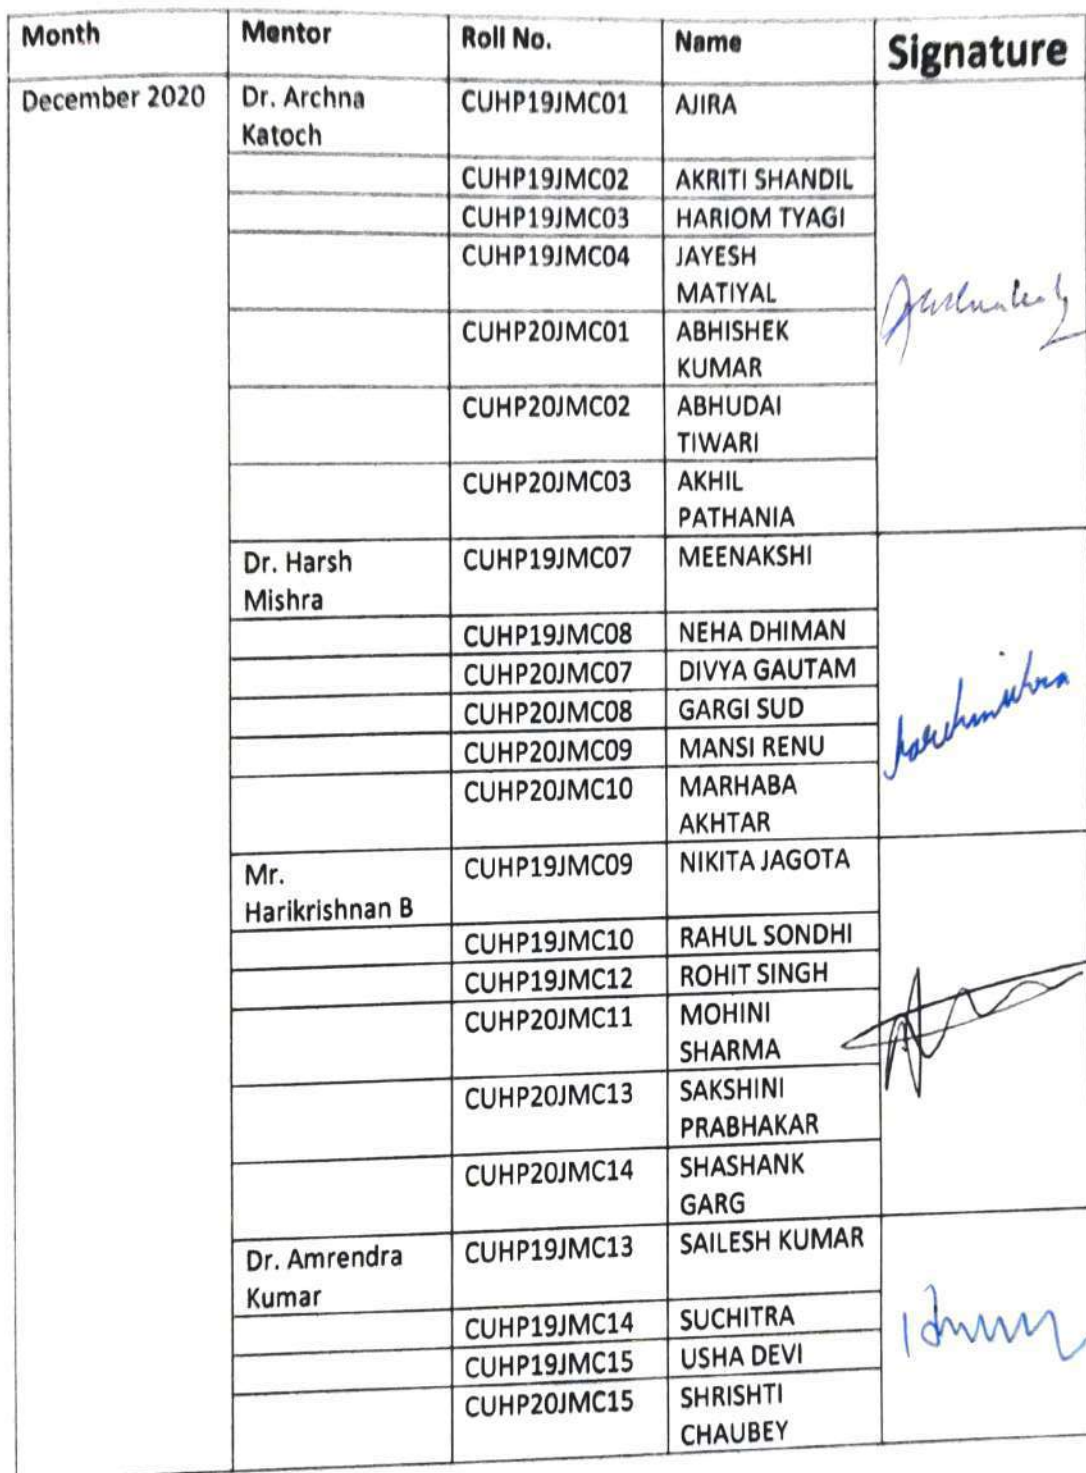 Month Mentor Roll No. Name Signature
December 2020 Dr. Archna CUHP19JMC01 AJIRA
Katoch
CUHP19JMC02 AKRITI SHANDIL
CUHP19JMC03 HARIOM TYAGI
CUHP19JMC04 JAYESH
MATIYAL
CUHP20JMC01 ABHISHEK
KUMAR
CUHP20JMC02 ABHUDAI
TIWARI
CUHP20JMC03 AKHIL
PATHANIA
Dr. Harsh CUHP19JMC07 MEENAKSHI
Mishra
CUHP19JMC08 NEHA DHIMAN
CUHP20JMC07 DIVYA GAUTAM
CUHP20JMC08 GARGI SUD
CUHP20JMC09 MANSI RENU
CUHP20JMC10 MARHABA
AKHTAR
Mr. CUHP19JMC09 NIKITA JAGOTA
Harikrishnan B
CUHP19JMC10 RAHUL SONDHI
CUHP19JMC12 ROHIT SINGH
CUHP20JMC11 MOHINI
SHARMA
CUHP20JMC13 SAKSHINI
PRABHAKAR
CUHP20JMC14 SHASHANK
GARG
Dr. Amrendra CUHP19JMC13 SAILESH KUMAR
Kumar
CUHP19JMC14 SUCHITRA
CUHP19JMC15 USHA DEVI
CUHP20JMC15 SHRISHTI
CHAUBEY